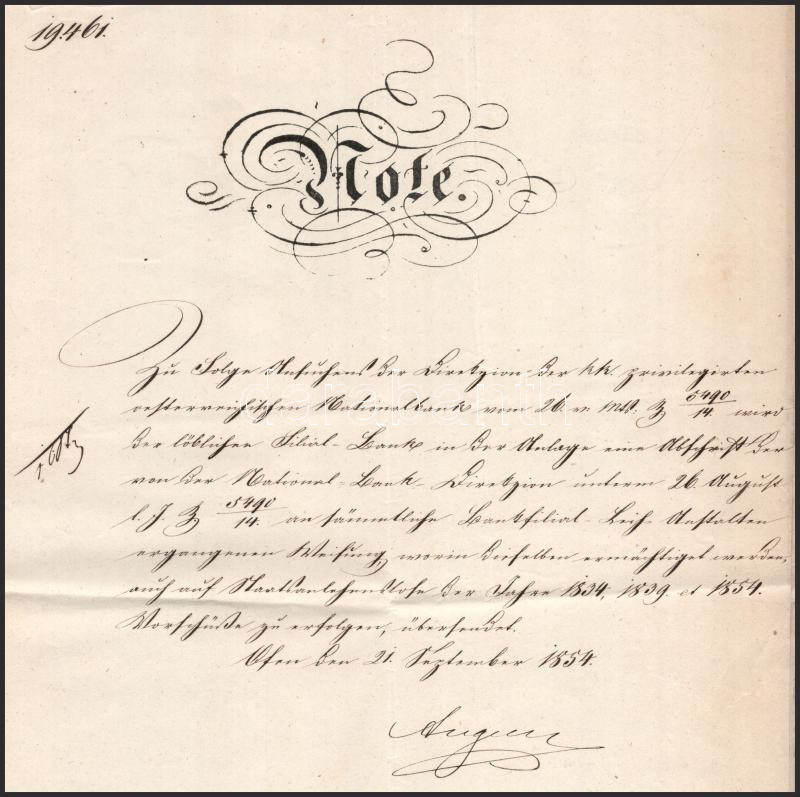 19461.
Note.
Zu Folge Ansuchens der Direkzion der kk. privilegirten
oesterreichischen Nationalbank vom 26. v. Mts. Z 5490/14. wird
der löblichen Filial-Bank in der Anlage eine Abschrift der
von der National-Bank-Direkzion unterm 26. August
l. J. Z 5490/14. an sämmtliche Bankfilial-Leih-Anstalten
ergangenen Weisung, worin dieselben ermächtiget werden,
auch auf Staatsanlehenslose der Jahre 1834, 1839 et 1854.
Vorschüße zu erfolgen, übersendet.
Ofen den 21. September 1854.